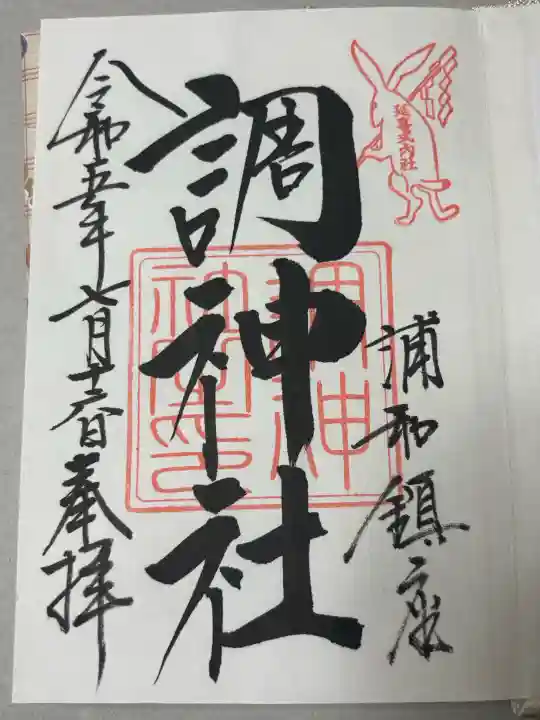 延喜式内社
浦和鎮座
調神社
令和五年七月十六日奉拝